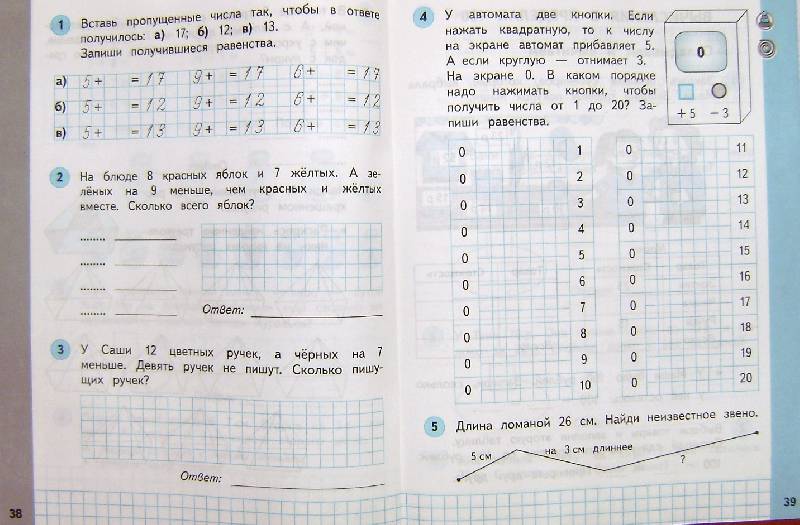 1 Вставь пропущенные числа так, чтобы в ответе
получилось: а) 17; б) 12; в) 13.
Запиши получившиеся равенства.
а) 5+ = 17 9+ = 17 6+ = 17
б) 5+ = 12 9+ = 12 6+ = 12
в) 5+ = 13 9+ = 13 6+ = 13
2 На блюде 8 красных яблок и 7 жёлтых. А зе-
лёных на 9 меньше, чем красных и жёлтых
вместе. Сколько всего яблок?
........ ________
........ ________
........ ________
........ ________
Ответ: ________
3 У Саши 12 цветных ручек, а чёрных на 7
меньше. Девять ручек не пишут. Сколько пишу-
щих ручек?
Ответ: ________
38
4 У автомата две кнопки. Если
нажать квадратную, то к числу
на экране автомат прибавляет 5.
А если круглую — отнимает 3.
На экране 0. В каком порядке
надо нажимать кнопки, чтобы
получить числа от 1 до 20? За-
пиши равенства.
0
+5 −3
0 1 0 11
0 2 0 12
0 3 0 13
0 4 0 14
0 5 0 15
0 6 0 16
0 7 0 17
0 8 0 18
0 9 0 19
0 10 0 20
5 Длина ломаной 26 см. Найди неизвестное звено.
5 см на 3 см длиннее ?
39